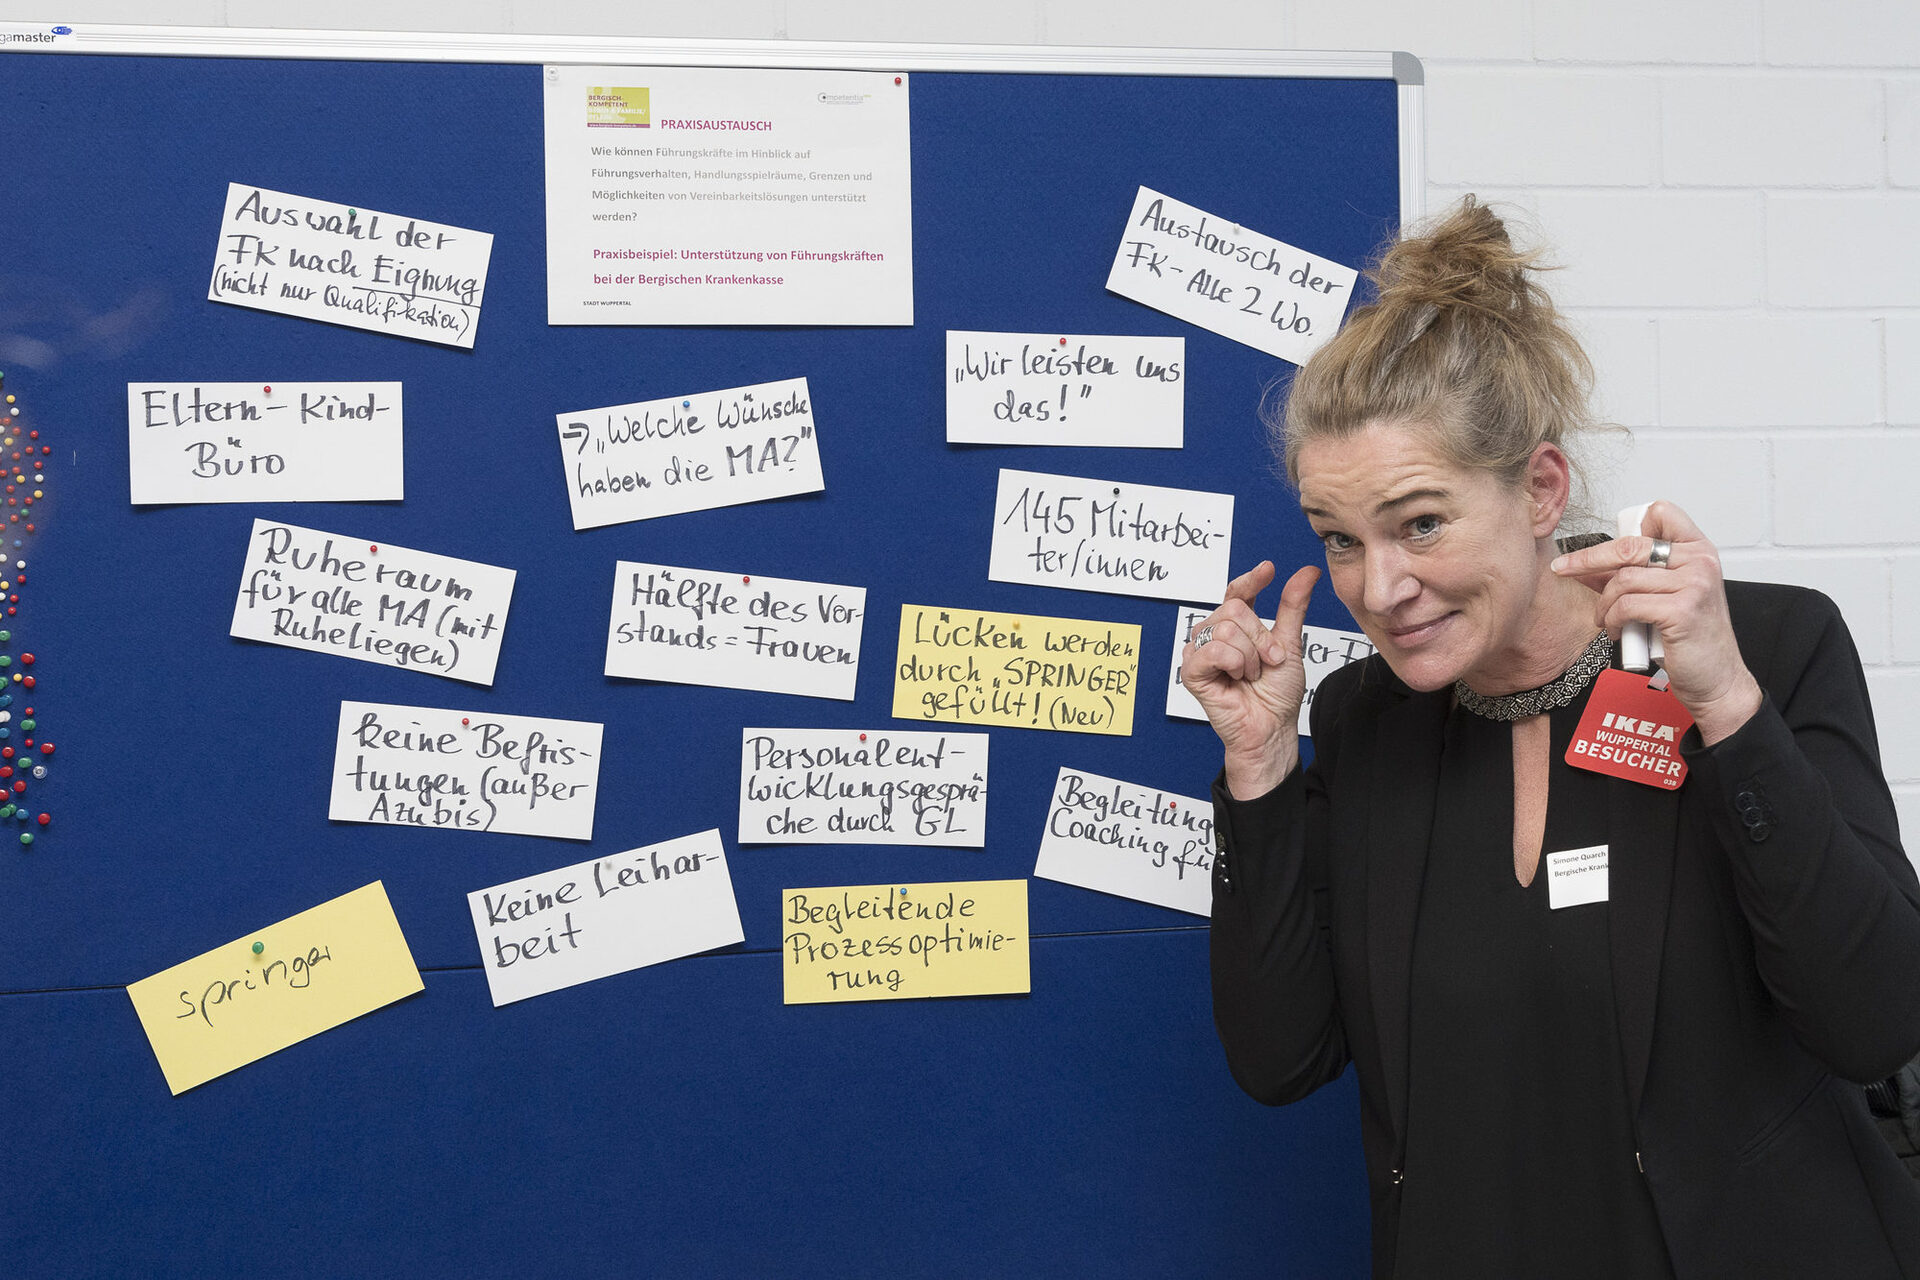 gamaster
BERGISCH-
KOMPETENT
PRAXISAUSTAUSCH
Wie können Führungskräfte im Hinblick auf
Führungsverhalten, Handlungsspielräume, Grenzen und
Möglichkeiten von Vereinbarkeitslösungen unterstützt
werden?
Praxisbeispiel: Unterstützung von Führungskräften
bei der Bergischen Krankenkasse
STADT WUPPERTAL
Auswahl der
FK nach Eignung
(nicht nur Qualifikation)
Austausch der
FK - Alle 2 Wo.
„Wir leisten uns
das!"
Eltern - Kind-
Büro
→ „Welche Wünsche
haben die MA?"
145 Mitarbei-
ter/innen
Ruheraum
für alle MA (mit
Ruheliegen)
Hälfte des Vor-
stands = Frauen
Lücken werden
durch „SPRINGER"
gefüllt! (Neu)
der
Keine Befris-
tungen (außer
Azubis)
Personalent-
wicklungsgesprä-
che durch GL
Begleitung
Coaching fü
Keine Leihar-
beit
Begleitende
Prozessoptimie-
rung
springer
IKEA
WUPPERTAL
BESUCHER
038
Simone Quarch
Bergische Krank